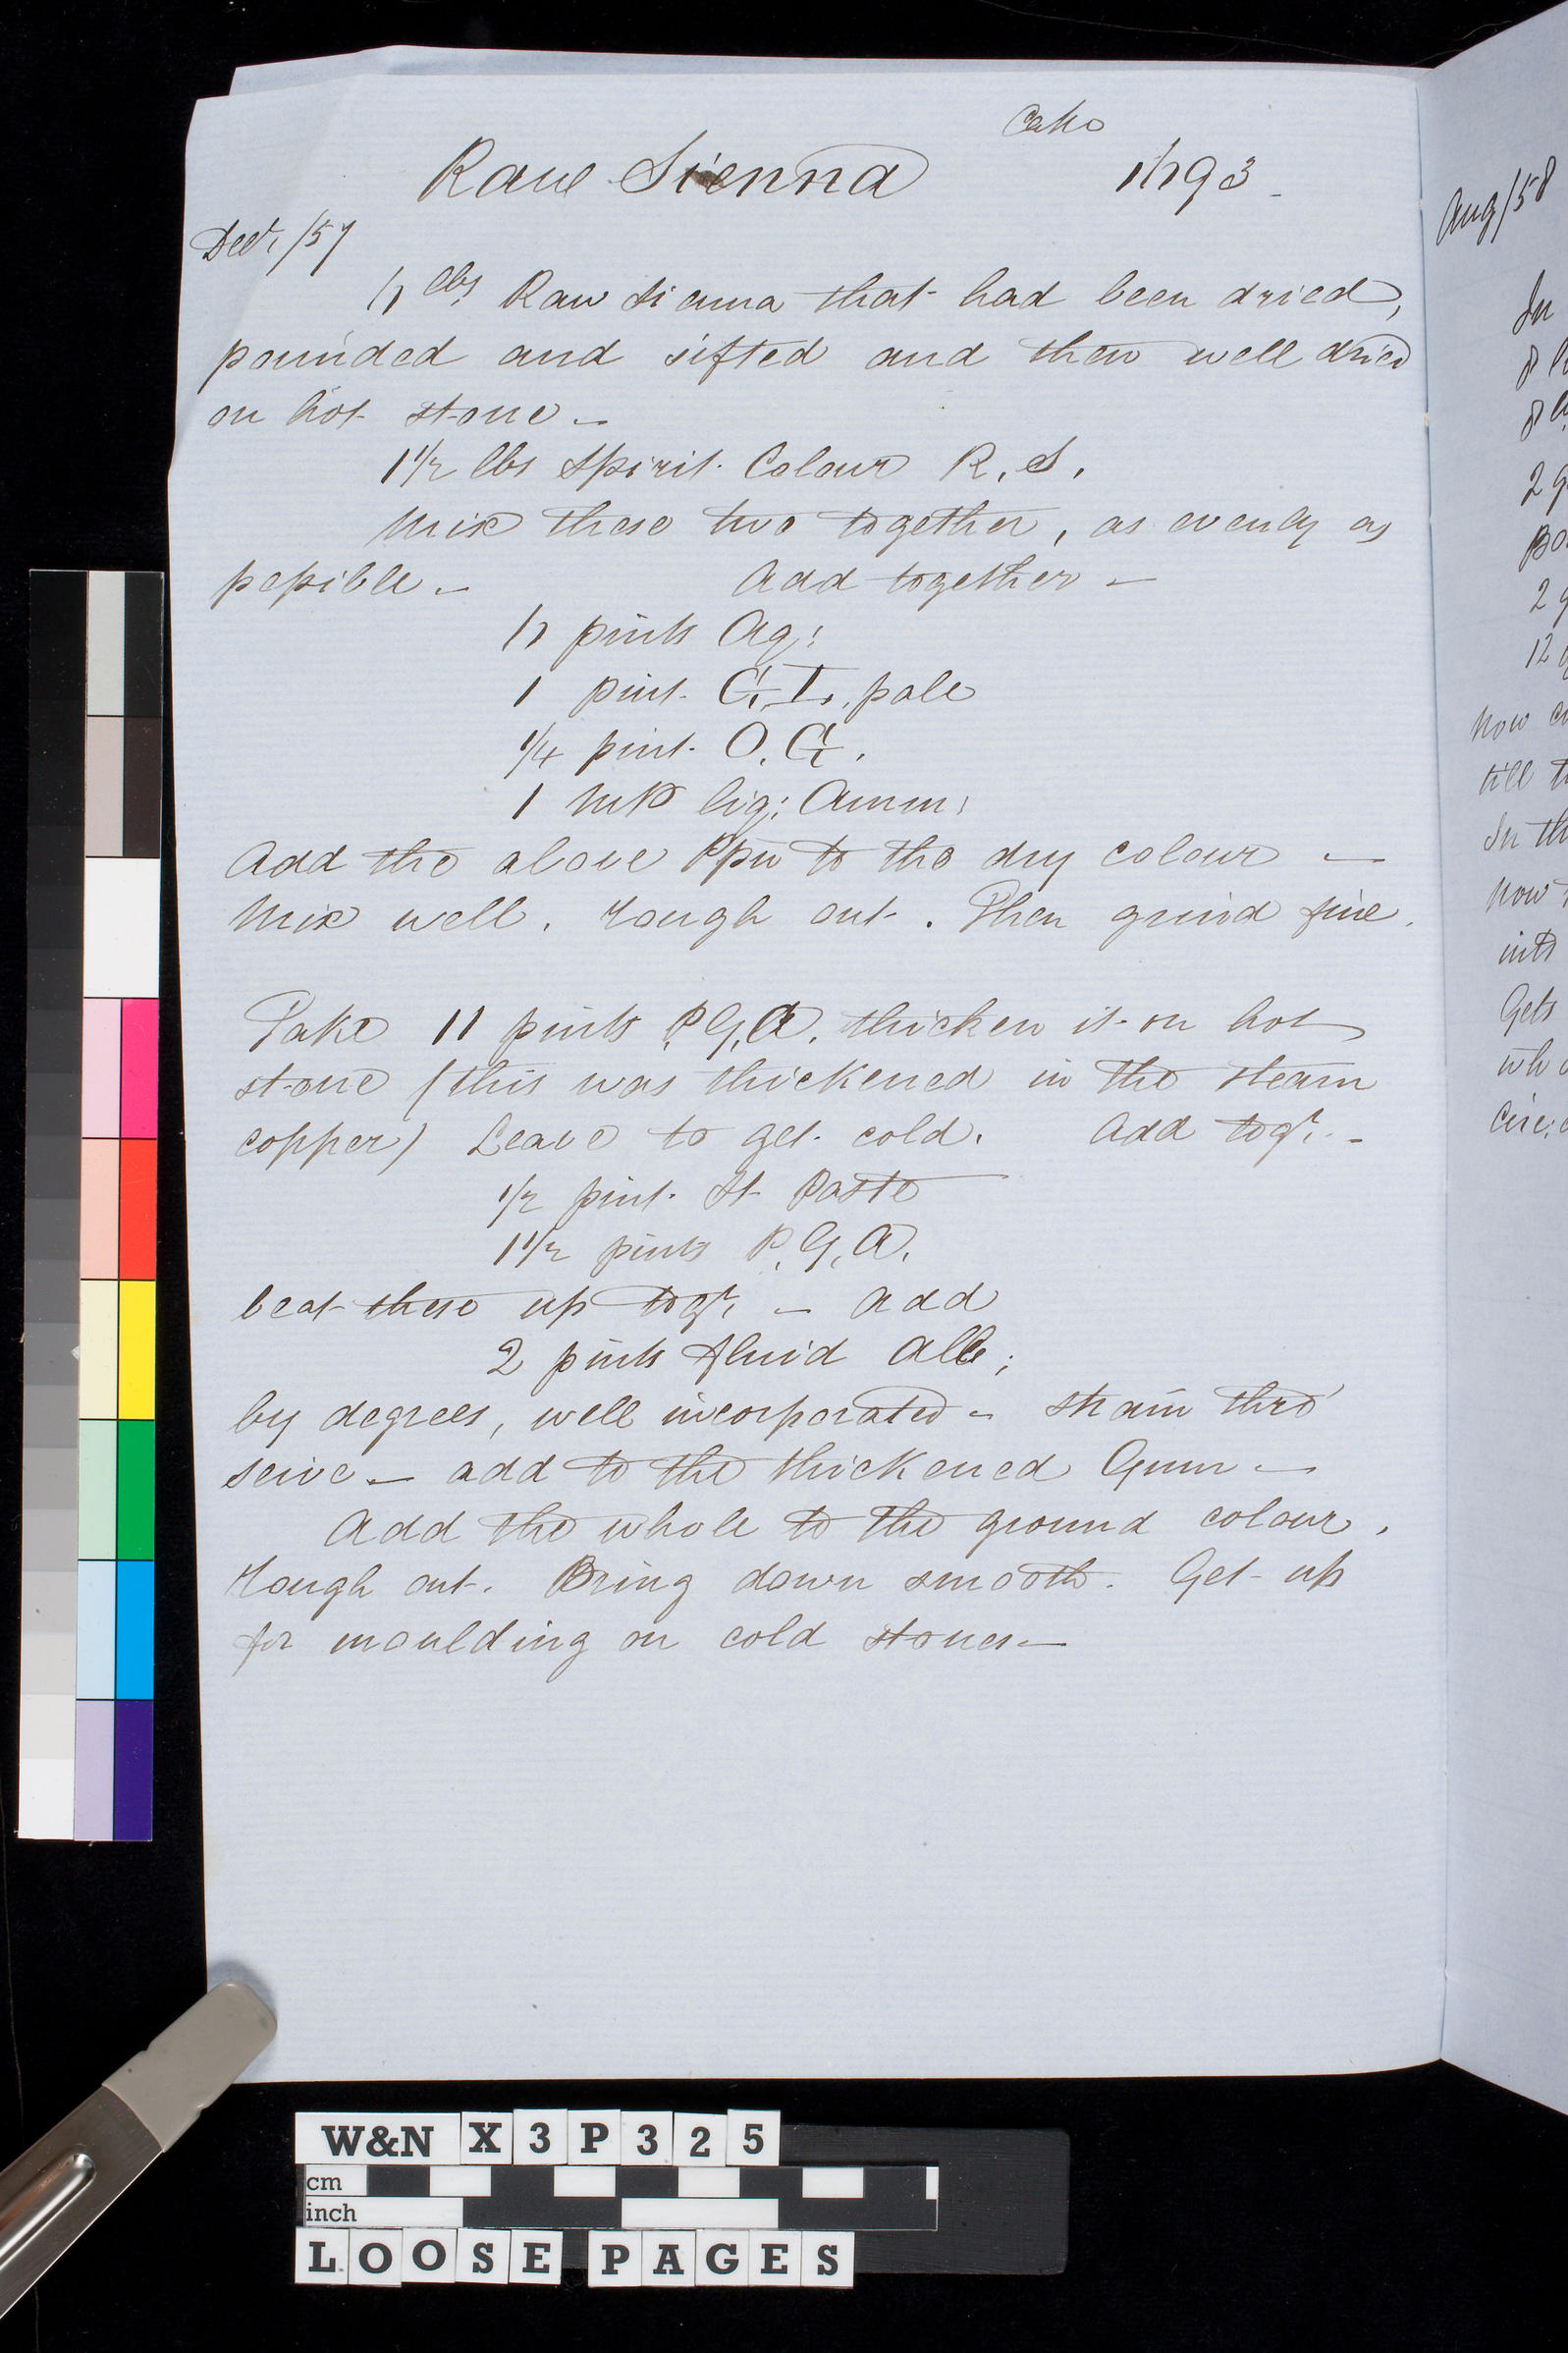 Cake
Raw Sienna
Decr, /57
lbs Raw Sienna that had been dried,
pounded and sifted and then well dried
on hot stone —
1 1/2 lbs Spirit Colour R. S.
Mix these two together, as evenly as
possible — Add together —
pints Aq:
1 pint G.T. pale
1/4 pint O.G.
1 liq: Amm:
Add the above Ppn to the dry colour —
Mix well. rough out. Then grind fine.
Take 11 pints P.G.A. thicken it on hot
stone (this was thickened in the steam
copper) Leave to get cold. Add togr. —
1/2 pint St Paste
1 1/2 pints P.G.A.
beat these up togr, — add
2 pints fluid Alb;
by degrees, well incorporated — strain thro'
seive — add to the thickened Gum —
Add the whole to the ground colour.
rough out. Bring down smooth. Get up
for moulding on cold stones —
Aug/58
In
8
8
2
2
12
now
till
In th
now
into
Gets
wh
W&N X3P325
cm
inch
LOOSE PAGES